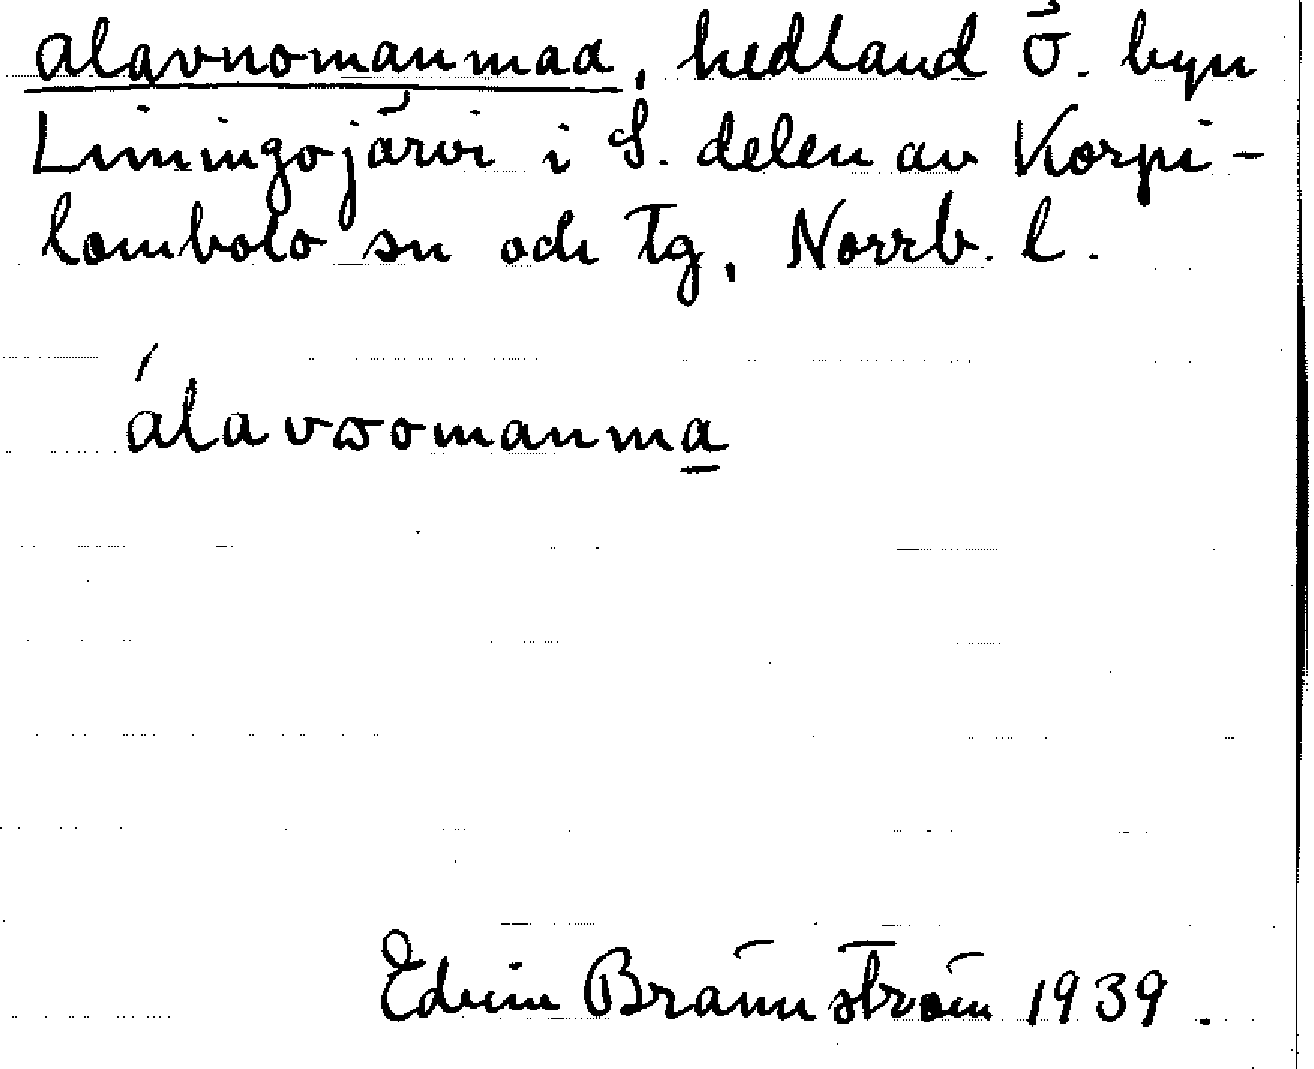 alavuomanmaa, hedland Ö. byn
Limingojärvi i S. delen av Korpi-
lombolo sn och tg, Norrb. l.
álavωomanma̲
Edvin Brännström 1939.